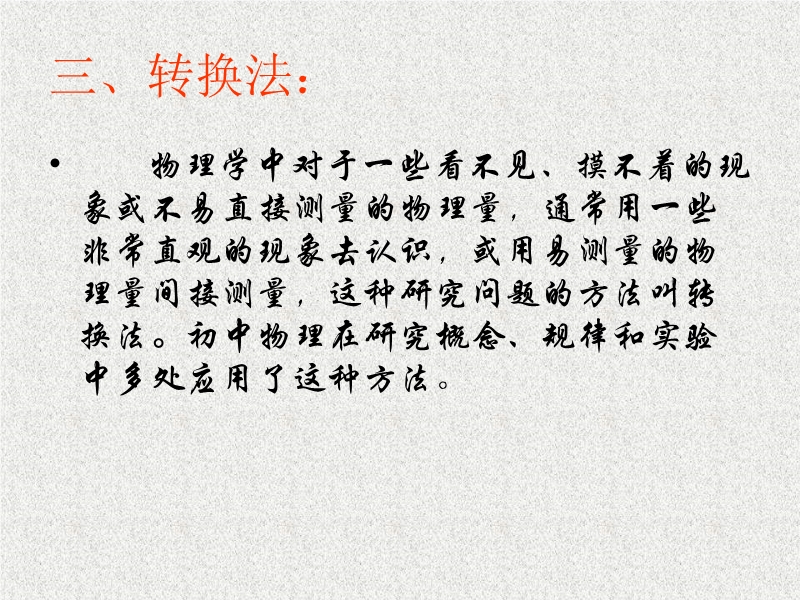 三、转换法：
• 物理学中对于一些看不见、摸不着的现
象或不易直接测量的物理量，通常用一些
非常直观的现象去认识，或用易测量的物
理量间接测量，这种研究问题的方法叫转
换法。初中物理在研究概念、规律和实验
中多处应用了这种方法。